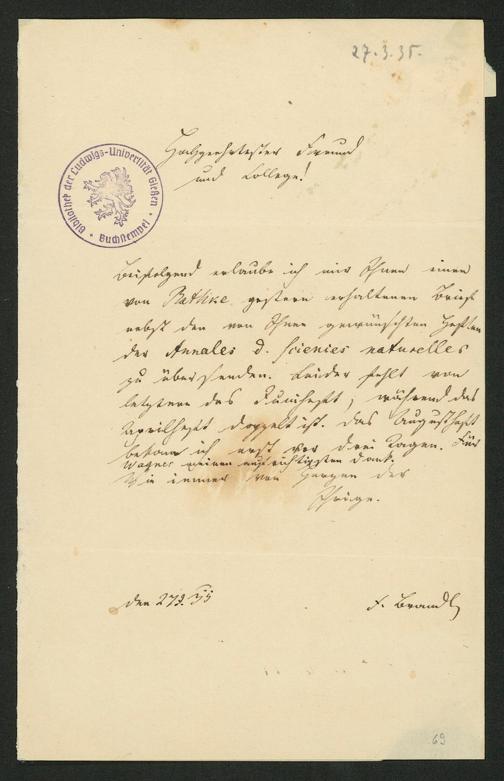 27.3.35.
Hochgeehrtester Freund
und College!
Bibliothek der Ludwigs-Universität Gießen
Buchstempel
Beifolgend erlaube ich mir Ihnen einen
von Rathke gestern erhaltenen Brief
nebst den von Ihnen gewünschten Heften
der Annales d. sciences naturelles
zu übersenden. Leider fehlt von
letztern das Juniheft, während das
Aprilheft doppelt ist. Das Augustheft
bekam ich erst vor drei Tagen. Für
Wagner meinen aufrichtigsten Dank.
Wie immer von Herzen der
Ihrige.
den 27
F. Brandt
69